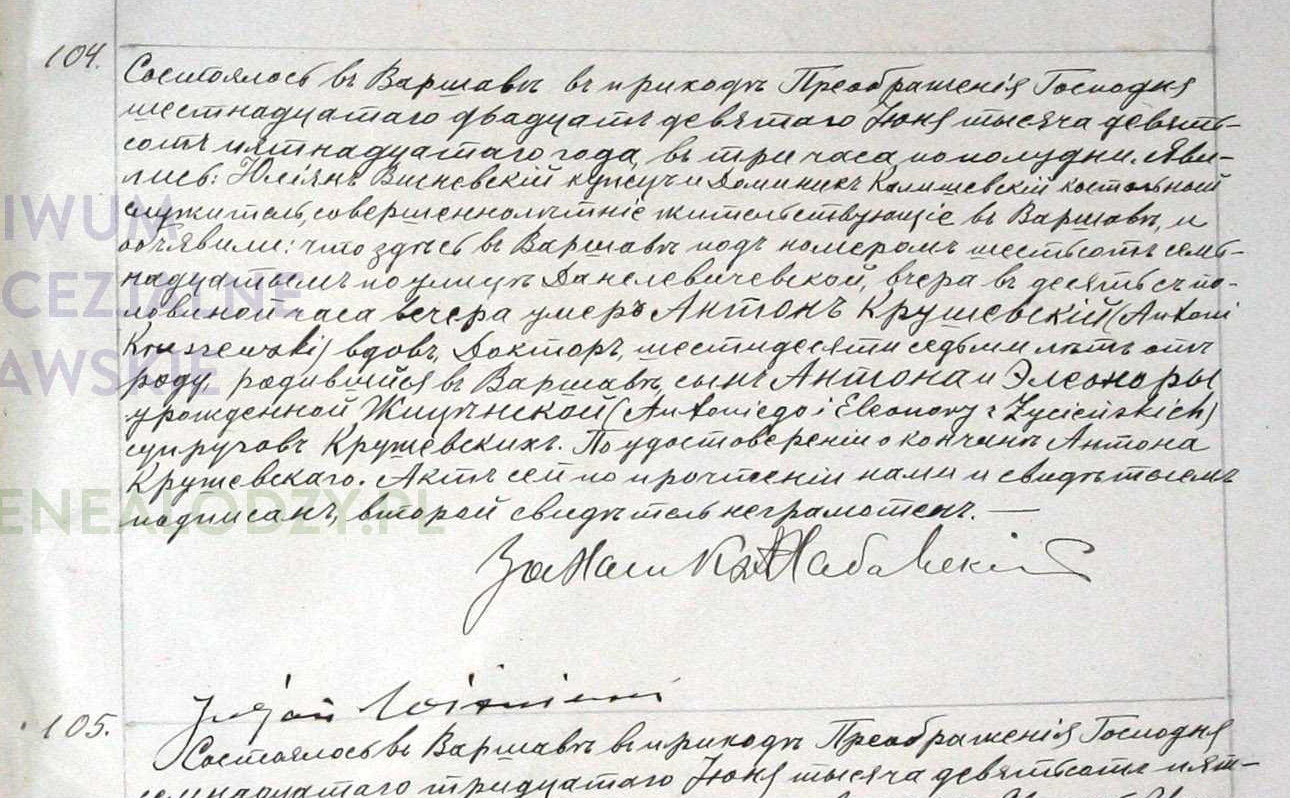 104.
Состоялось въ Варшавѣ въ приходѣ Преображенія Господня
шестнадцатаго двадцать девятаго Іюня тысяча девять-
сотъ пятнадцатаго года, въ три часа пополудни. Яви-
лись: Юліянъ Висневскій и Доминикъ Калишевскій костельный
служитель, совершеннолѣтніе жительствующіе въ Варшавѣ, и
объявили: что здѣсь въ Варшавѣ подъ номеромъ шестьсотъ семь-
надцатымъ по улицѣ Данелевичевской, вчера въ десять съ по-
ловиной часа вечера умеръ Антонъ Крушевскій (Antoni
Kruszewski) вдовъ, Докторъ, шестидесяти седьми лѣтъ отъ
роду, родившійся въ Варшавѣ, сынъ Антона и Элеоноры
урожденной Жицѣнской (Antoniego i Eleonory z Życieńskich)
супруговъ Крушевскихъ. По удостовереніи о кончинѣ Антона
Крушевскаго. Актъ сей по прочтеніи нами и свидѣтелемъ
подписанъ, второй свидѣтель неграмотенъ. —
105.
Состоялось въ Варшавѣ въ приходѣ Преображенія Господня
семнадцатаго тридцатаго Іюня тысяча девятьсотъ пят-
IWUM
CEZJALNE
AWSKIE
ENEALODZY.PL